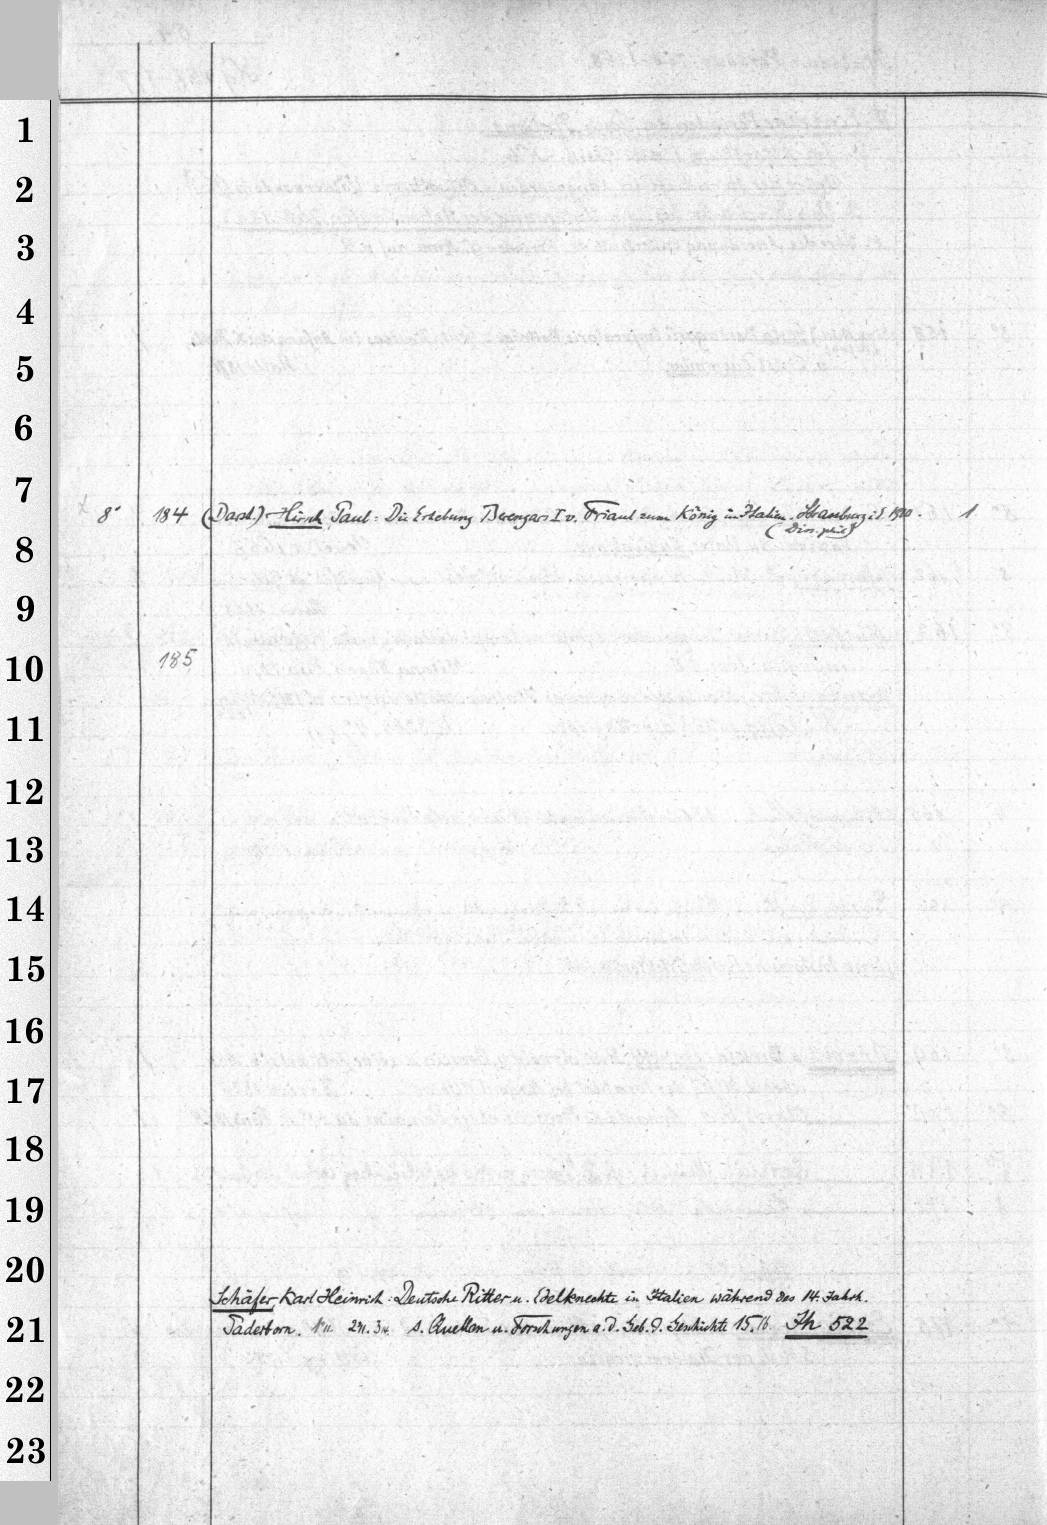 1
2
3
4
5
6
7
8° 184 (Darst.) Hirsch Paul: Die Erhebung Berengars I v. Friaul zum König in Italien. Strassburg i. E. 1910. 1
(Diss. phil.)
8
9
185
10
11
12
13
14
15
16
17
18
19
20
Schäfer Karl Heinrich: Deutsche Ritter u. Edelknechte in Italien während des 14. Jahrh.
21
Paderborn. 1 u. 2 u. 3 u. s. Quellen u. Forschungen a. d. Geb. d. Geschichte 15, 16. Ih 522
22
23